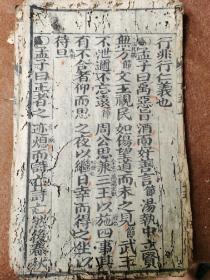 行非行仁義也
○孟子曰禹惡旨酒而好善言節湯執中立賢
無方節文王視民如傷望道而未之見節武王
不泄邇不忘遠節周公思兼三王以施四事其
有不合者仰而思之夜以繼日幸而得之坐以
待旦
○孟子曰王者之迹熄而詩亡詩亡然後春秋